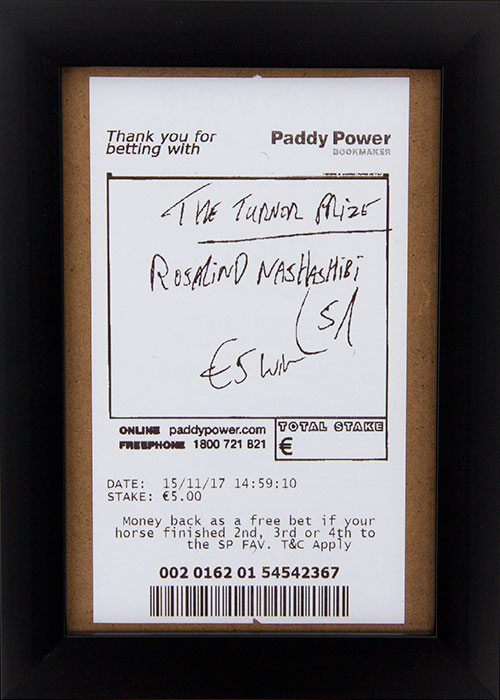 Thank you for
betting with
Paddy Power
BOOKMAKER
THE TURNOR PRIZE
ROSALIND NASHASHIBI
5/1
€5 win
ONLINE paddypower.com
FREEPHONE 1800 721 821
TOTAL STAKE
€
DATE: 15/11/17 14:59:10
STAKE: €5.00
Money back as a free bet if your
horse finished 2nd, 3rd or 4th to
the SP FAV. T&C Apply
002 0162 01 54542367